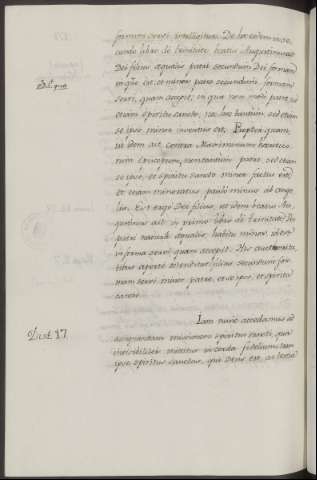 formam servi, intelligitur. De hoc eodem in se-
cundo libro de trinitate beatus Augustinus ait
Dei filius aequalis patri secundum Dei formam
in qua est: et minor patre secundum formam
servi, quam accepit, in qua non modo patre, sed
etiam spiritu sancto, nec hoc tantum sed etiam
se ipso minor inventus est. Propter quam,
ut idem ait contra Maximinum haereticum
non tantum patre sed etiam
se ipso, et spiritu sancto minor factus est
et etiam minoratus paulo minus ab ange-
lis. Est ergo Dei filius, ut idem beatus Au-
gustinus ait in primo libro de trinitate, Deo
patri natura aequalis, habitu minor, id est
in forma servi quam accepit. His auctorita-
tibus aperte ostenditur filius secundum for-
mam servi minor patre, et se ipso, et spiritu
sancto.
Dist. 17
Iam nunc accedamus ad
assignandam missionem spiritus sancti, qua
invisibiliter mittitur in corda fidelium: nam
ipse spiritus sanctus, qui Deus est, ac tertia